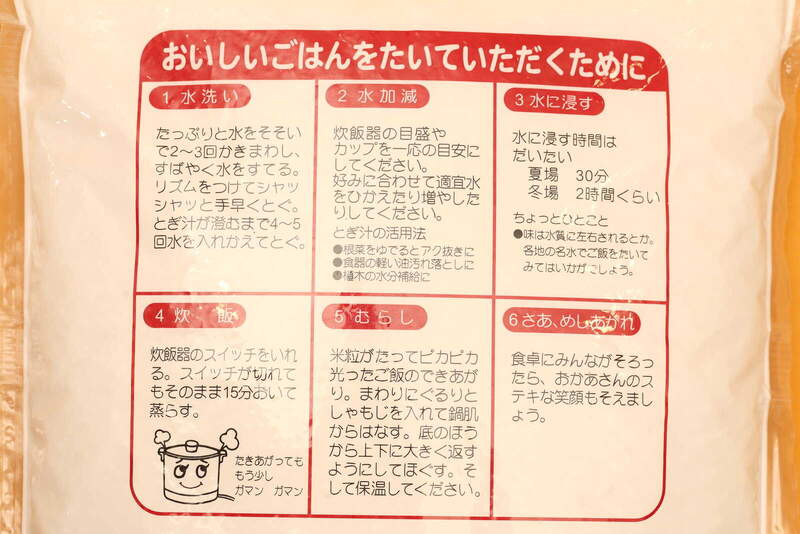 おいしいごはんをたいていただくために
1 水洗い
たっぷりと水をそそい
で2〜3回かきまわし、
すばやく水をすてる。
リズムをつけてシャッ
シャッと手早くとぐ。
とぎ汁が澄むまで4〜5
回水を入れかえてとぐ。
2 水加減
炊飯器の目盛や
カップを一応の目安に
してください。
好みに合わせて適宜水
をひかえたり増やした
りしてください。
とぎ汁の活用法
●根菜をゆでるとアク抜きに
●食器の軽い油汚れ落としに
●植木の水分補給に
3 水に浸す
水に浸す時間は
だいたい
夏場 30分
冬場 2時間くらい
ちょっとひとこと
●味は水質に左右されるとか。
各地の名水でご飯をたいて
みてはいかがでしょう。
4 炊飯
炊飯器のスイッチをいれ
る。スイッチが切れて
もそのまま15分おいて
蒸らす。
たきあがっても
もう少し
ガマン ガマン
5 むらし
米粒がたってピカピカ
光ったご飯のできあが
り。まわりにぐるりと
しゃもじを入れて鍋肌
からはなす。底のほう
から上下に大きく返す
ようにしてほぐす。そ
して保温してください。
6 さあ、めしあがれ
食卓にみんながそろっ
たら、おかあさんのス
テキな笑顔もそえまし
ょう。